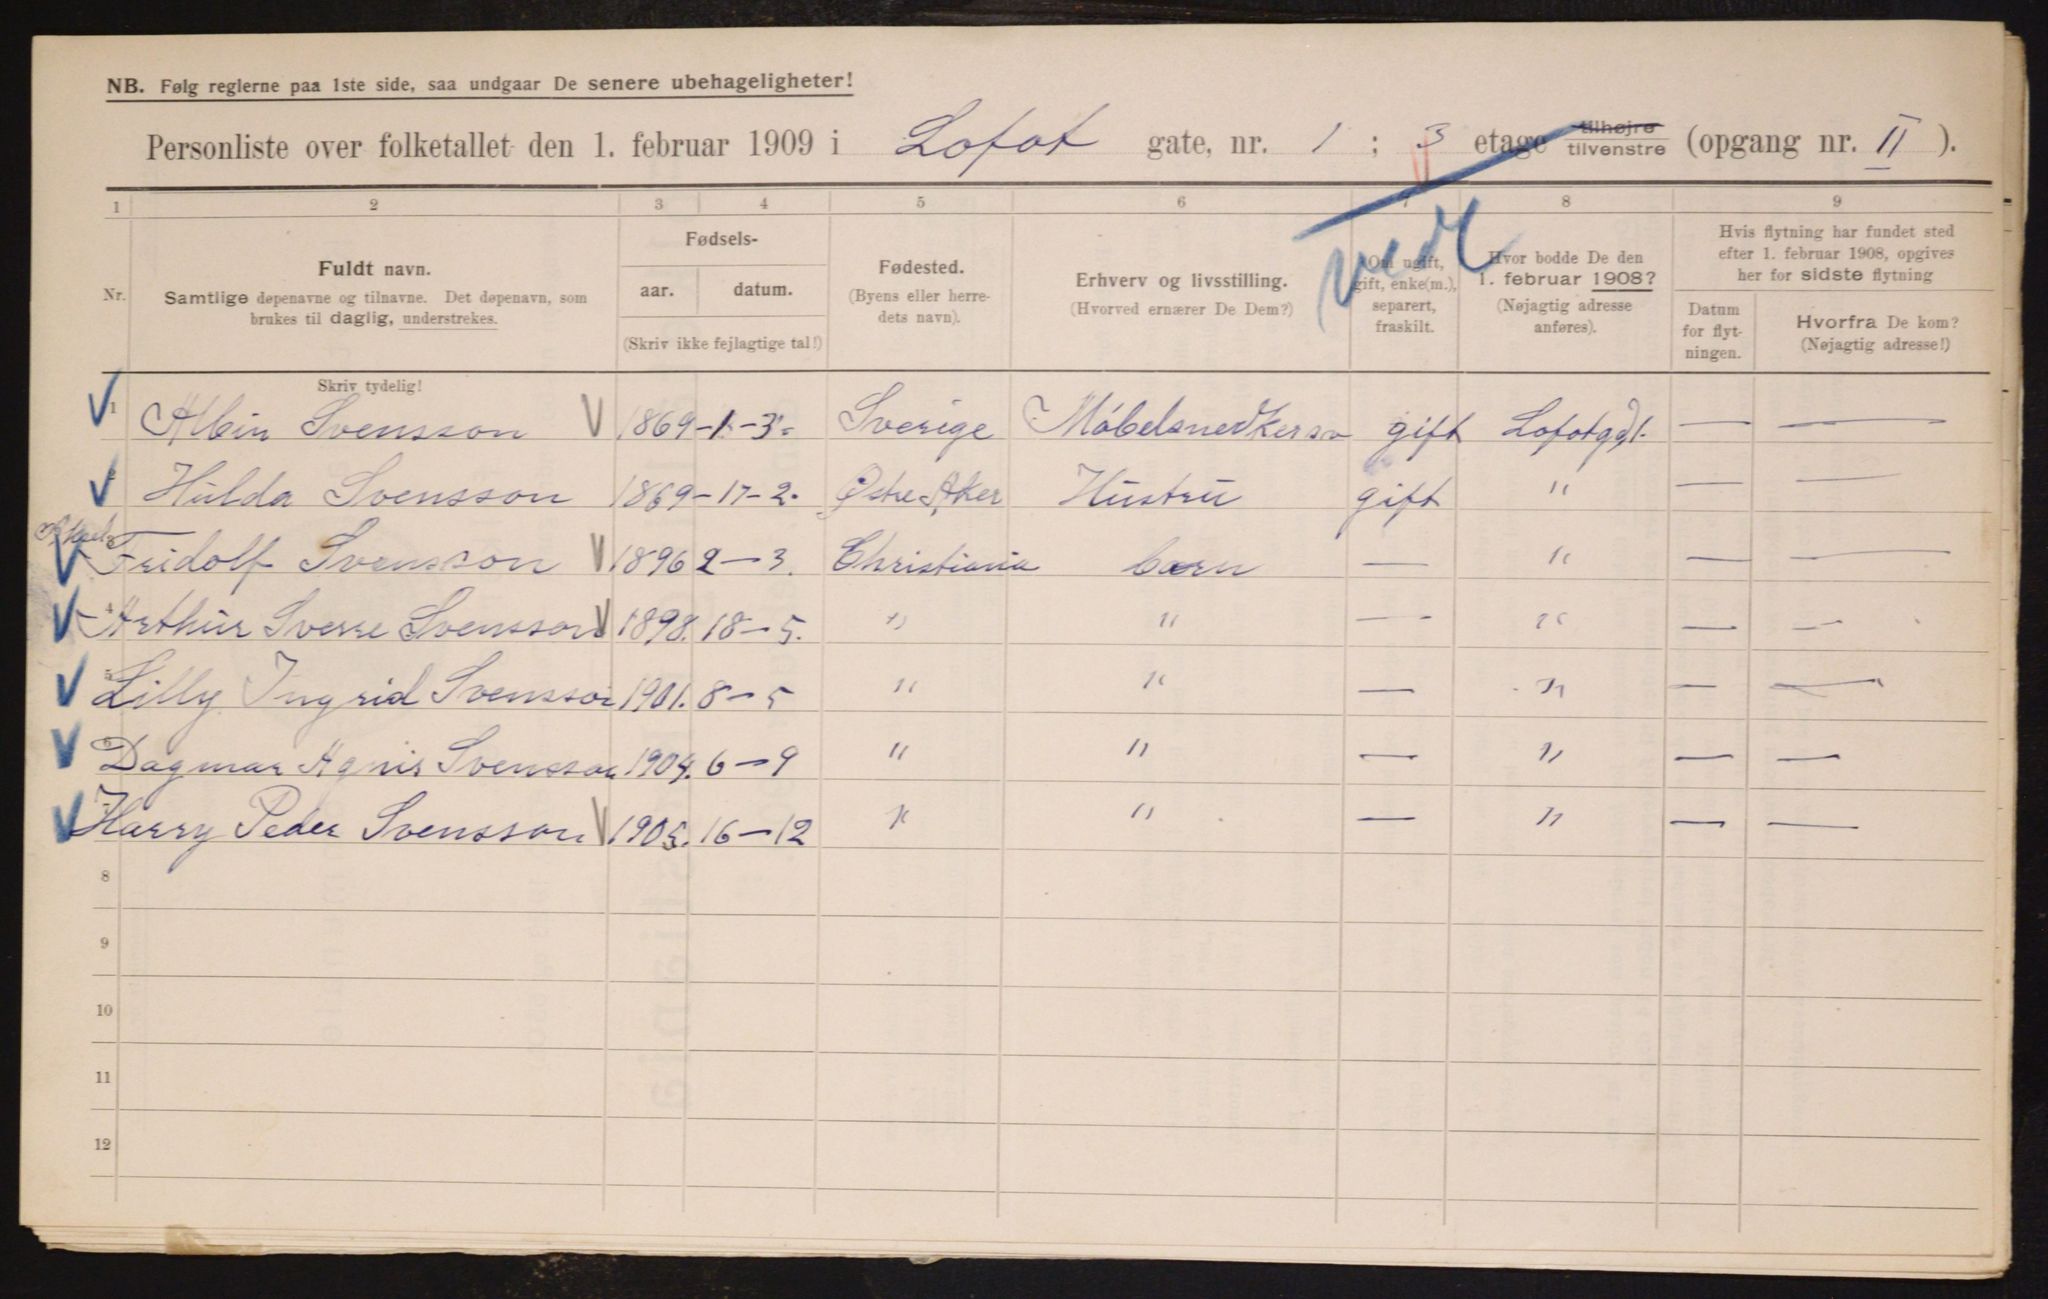 NB. Følg reglerne paa 1ste side, saa undgaar De senere ubehageligheter!
Personliste over folketallet den 1. februar 1909 i Lofot gate, nr. 1 ; 3 etage tilhøjre tilvenstre (opgang nr. II ).
1 2 3 4 5 6 7 8 9
Nr.
Fuldt navn.
Samtlige døpenavne og tilnavne. Det døpenavn, som
brukes til daglig, understrekes.
Skriv tydelig!
Fødsels-
aar. datum.
(Skriv ikke fejlagtige tal!)
Fødested.
(Byens eller herre-
dets navn).
Erhverv og livsstilling.
(Hvorved ernærer De Dem?)
Om ugift,
gift, enke(m.),
separert,
fraskilt.
Hvor bodde De den
1. februar 1908?
(Nøjagtig adresse
anføres).
Hvis flytning har fundet sted
efter 1. februar 1908, opgives
her for sidste flytning
Datum
for flyt-
ningen.
Hvorfra De kom?
(Nøjagtig adresse!)
1 Albin Svensson 1869 - 1 - 3 Sverige Møbelsnedkersv gift Lofotgd 1. — —
2 Hulda Svensson 1869 - 17 - 2. Østre Aker Hustru gift " — —
3 Fridolf Svensson 1896 2 — 3. Christiania barn — " — —
4 Arthur Sverre Svensson 1898. 18 — 5. " " — " — —
5 Lilly Ingrid Svensson 1901. 8 — 5 " " — " — —
6 Dagmar Agnis Svensson 1904. 6 — 9 " " — " — —
Harry Peder Svensson 1905. 16 — 12 " " — " — —
8
9
10
11
12